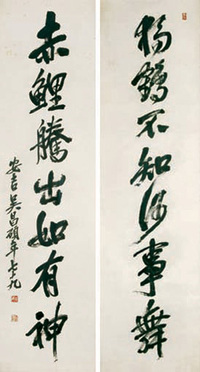 獨鶴不知何事舞
赤鯉騰出如有神
安吉吳昌碩年